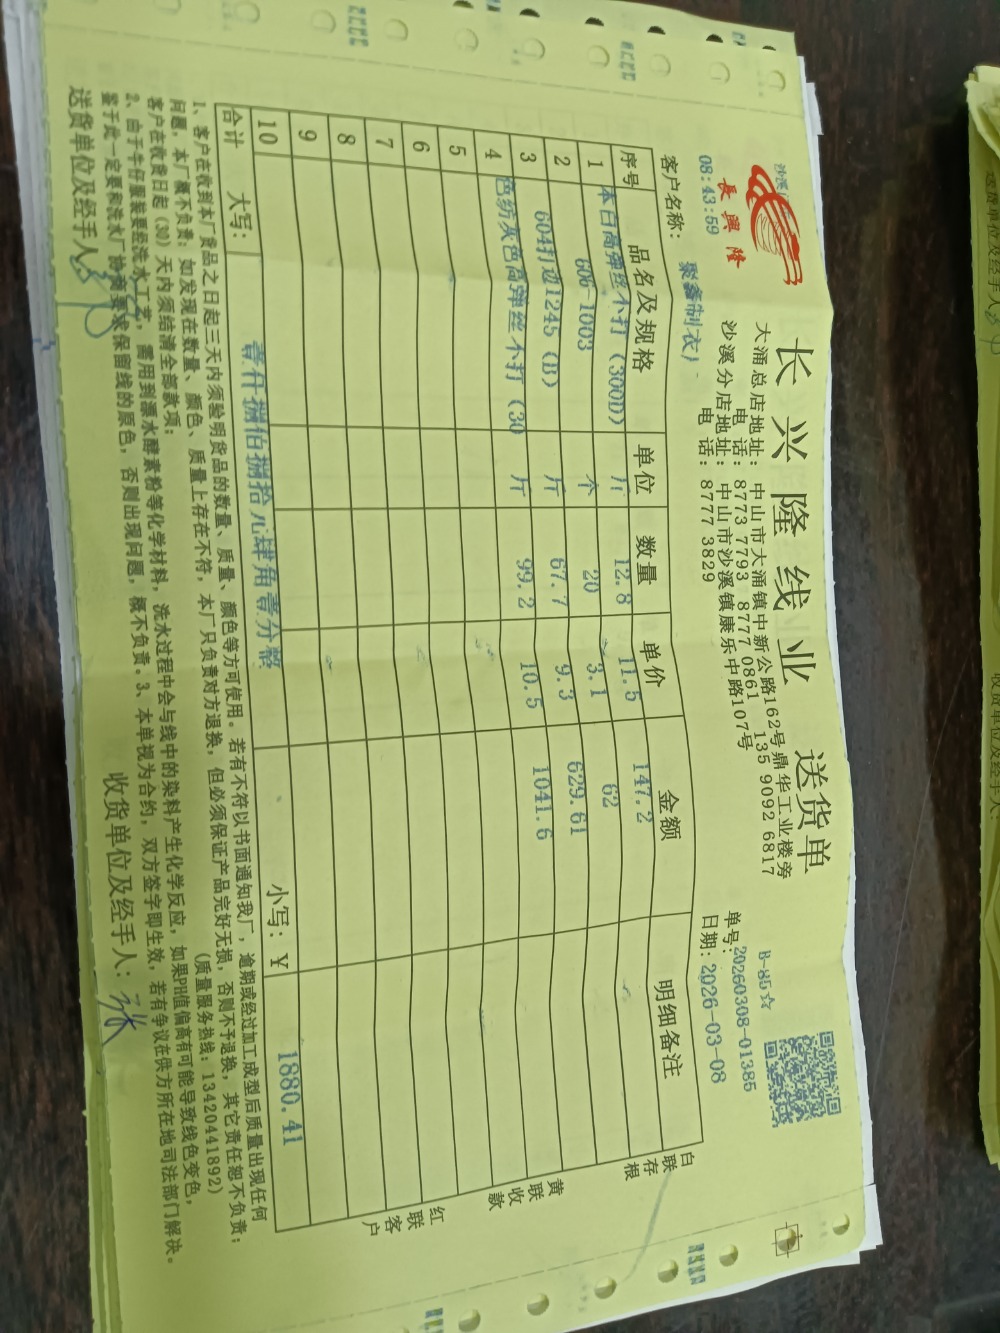 长兴隆线业 送货单
長興隆
大涌总店地址：中山市大涌镇中新公路162号鼎华工业楼旁
电话：8773 7793 8777 0861 135 9092 6817
沙溪分店地址：中山市沙溪镇康乐中路107号
电话：8777 3829
B-85☆
单号：20260308-01385
08:43:59
日期：2026-03-08
客户名称：聚鑫制衣）
序号 品名及规格 单位 数量 单价 金额 明细备注
1 本白高弹丝不打（300D） 斤 12.8 11.5 147.2
2 606-1003 个 20 3.1 62
3 604打边1245（B） 斤 67.7 9.3 629.61
4 色纺灰色高弹丝不打（30 斤 99.2 10.5 1041.6
5
6
7
8
9
10
合计 大写：壹仟捌佰捌拾元肆角壹分整 小写：¥ 1880.41
白联存根
黄联收款
红联客户
1、客户在收到本厂货品之日起三天内须验明货品的数量、质量、颜色等方可使用。若有不符以书面通知我厂，逾期或经过加工成型后质量出现任何
问题，本厂概不负责；如发现在数量、颜色、质量上存在不符，本厂只负责对方退换，但必须保证产品完好无损，否则不予退换，其它责任恕不负责；
客户在收货日起（30）天内须结清全部款项；（质量服务热线：13420441892）
2、由于牛仔服装要经洗水工艺，需用到漂水酵素粉等化学材料，洗水过程中会与线中的染料产生化学反应，如果PH值偏高有可能导致线色变色，
鉴于此一定要和洗水厂协商要求保留线的原色，否则出现问题，概不负责。3、本单视为合约，双方签字即生效，若有争议在供方所在地司法部门解决。
送货单位及经手人：
收货单位及经手人：张